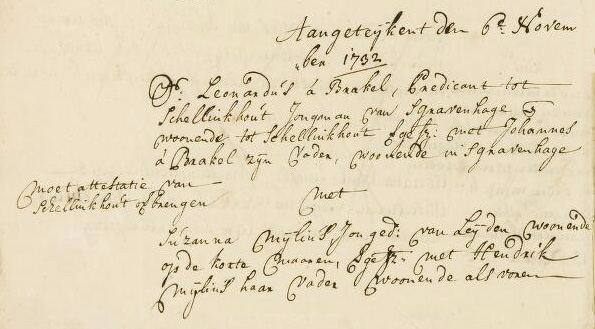 Aangeteijkent den 6e. Novem
ber 1732
Ds. Leonardus á Brakel, Predicant tot
Schellinkhout Jongman van Sgravenhage
woonende tot Schellinkhout geass: met Johannes
á Brakel zijn Vader, woonende in Sgravenhage
moet attestatie van
Schellinkhout opbrengen
met
Suzanna Mijlius, Jon ged: van Leijden woonende
op de korte Maaren, geass: met Hendrik
Mijlius haar Vader woonende als voren